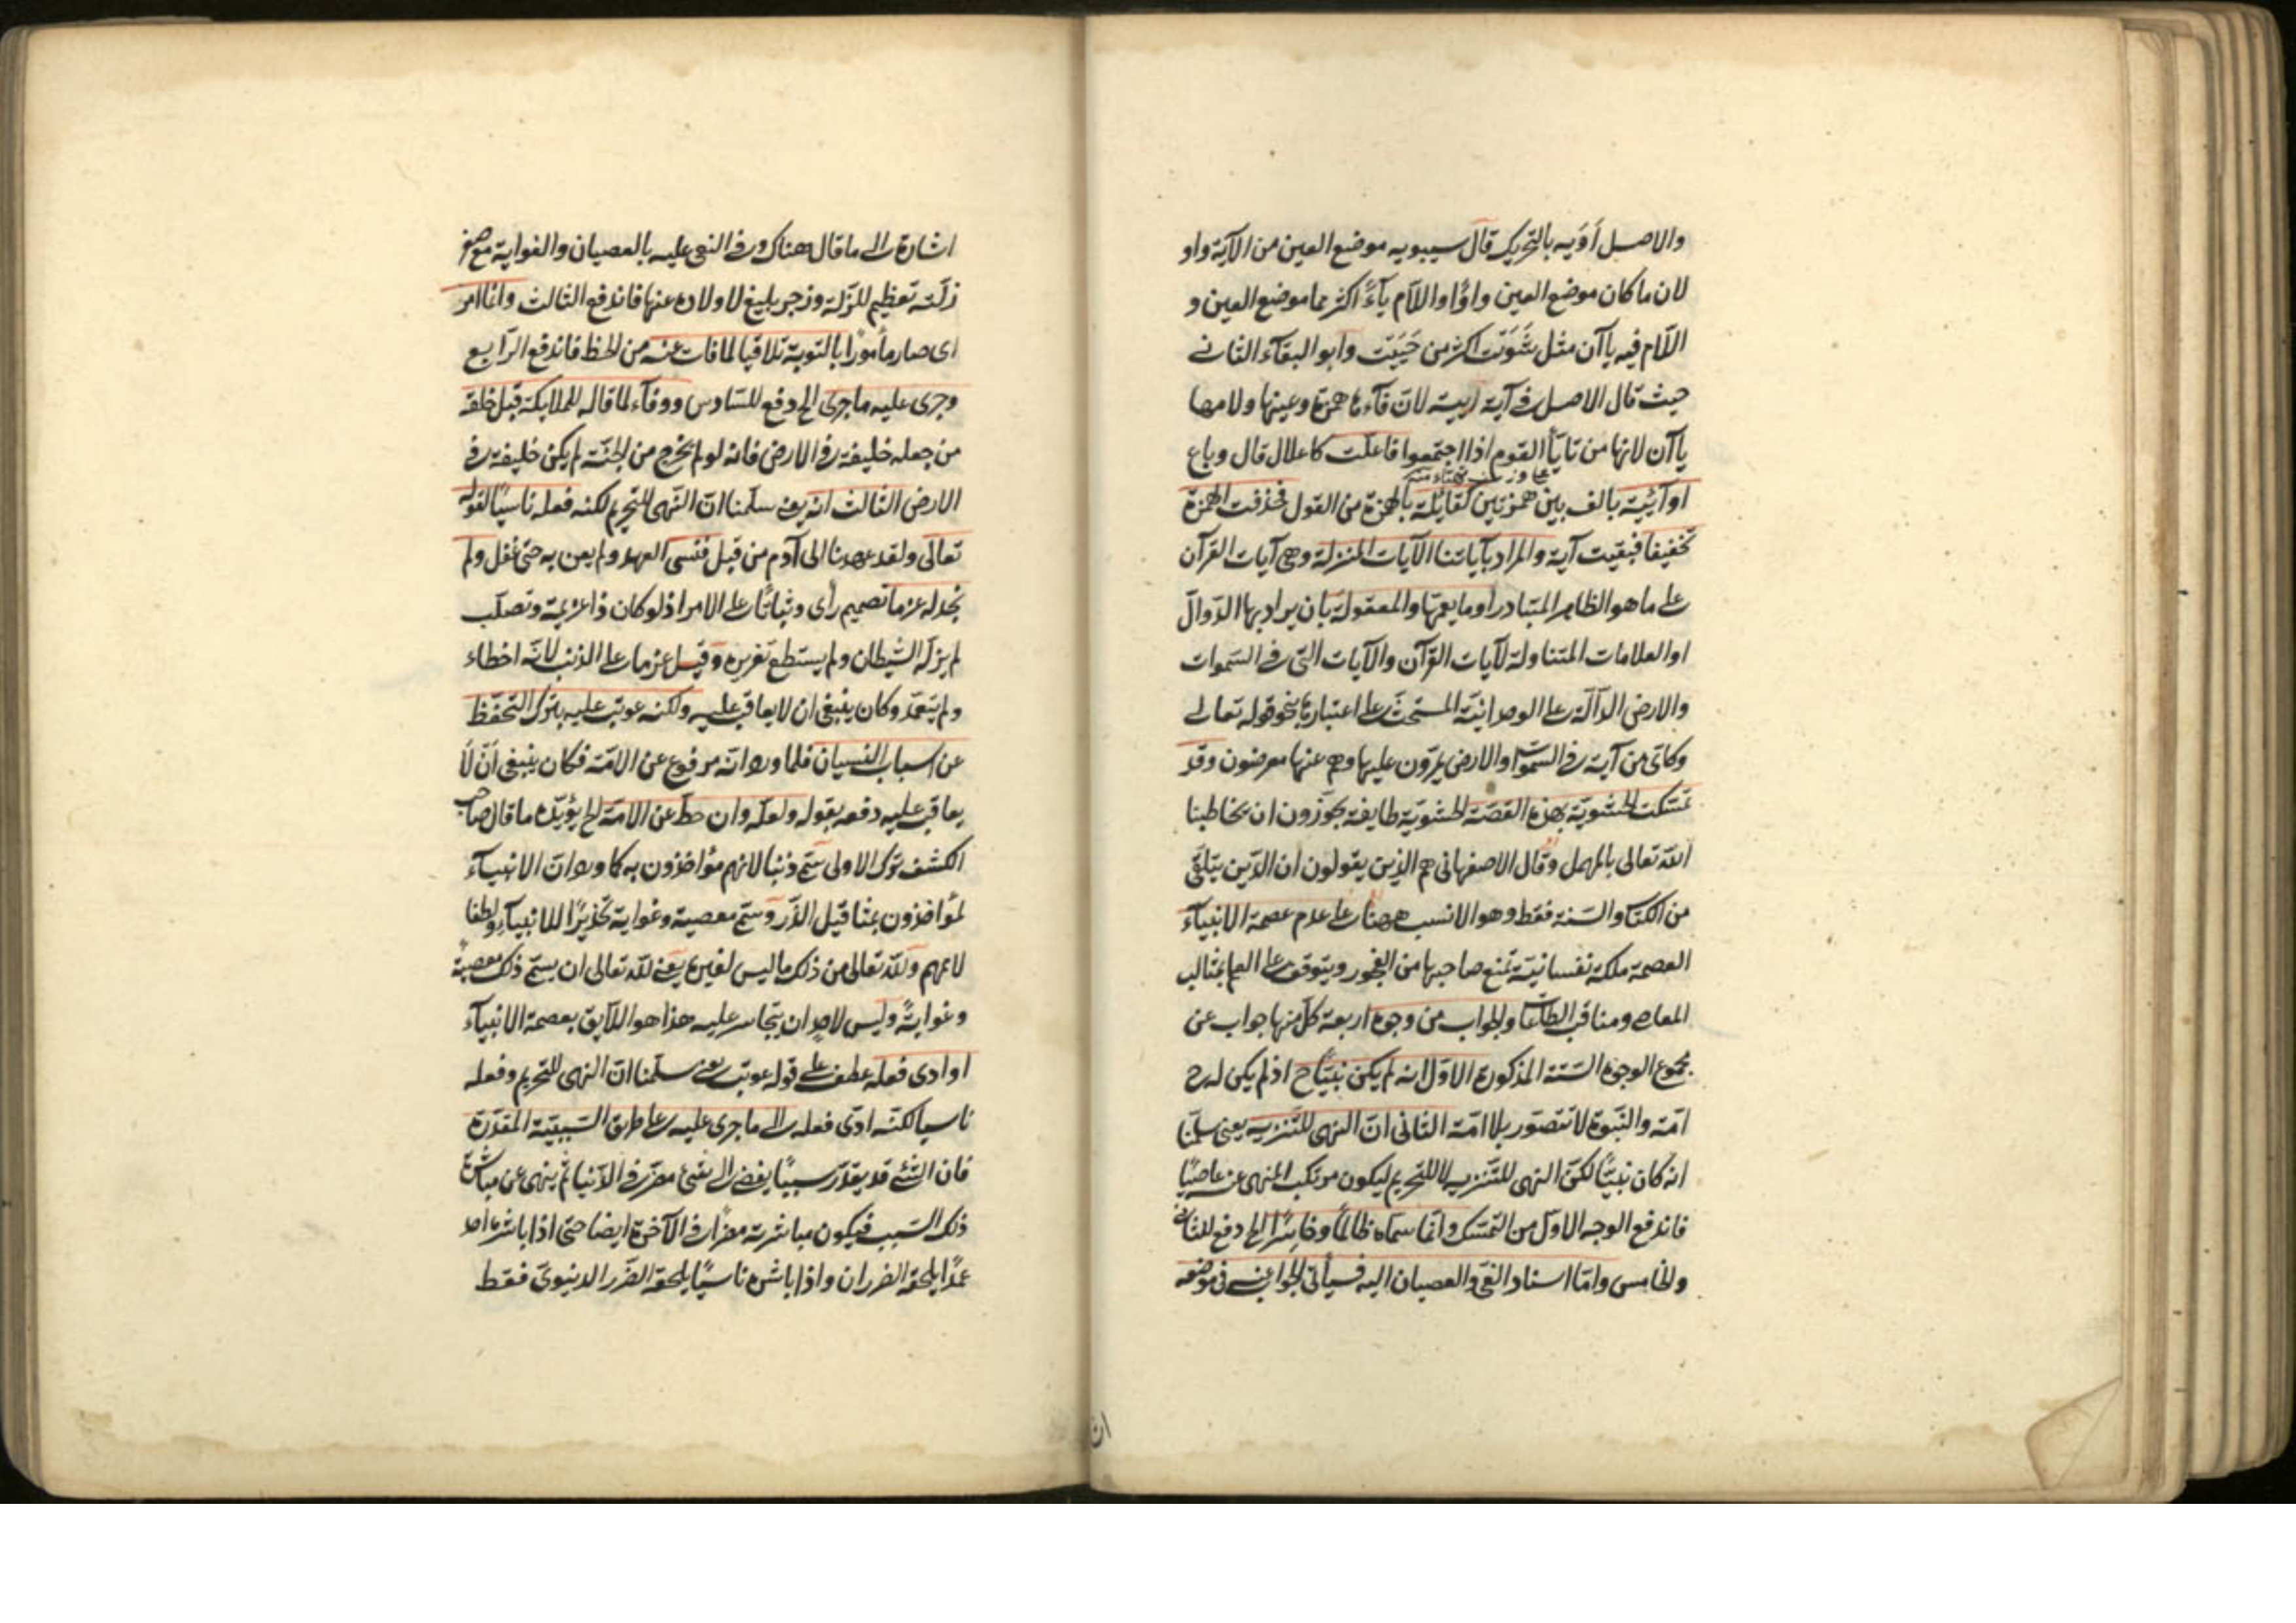 والاصل أَوَيه بالتحريك قال سيبويه موضع العين من الآية واو
لان ما كان موضع العين واوًا واللام ياءً اكثر مما موضع العين و
اللام فيه ياآن مثل شَوَيْت اكثر من حَيَيْت وابو البقاء الثانى
حيث قال الاصل فى آية اييية لان فآءها همزة وعينها ولامها
ياآن لانها من تايّأ القوم اذا اجتمعوا فاعلت كاعلال قال وباع
او آئية بالف بين همزتين كقائلة بالهمزة من القول فحذفت الهمزة
تخفيفا فبقيت آية والمراد بآياتنا الآيات المنزلة وهى آيات القرآن
على ما هو الظاهر المتبادر او ما يعمّها والمعقولة بان يراد بها الدوالّ
او العلامات المتناولة لآيات القرآن والآيات التى فى السموات
والارض الدآلّة على الوحدانيّة المستحثّ على اعتبارها نحو قوله تعالى
وكاىّ من آية فى السموات والارض يمرّون عليها وهم عنها معرضون وقد
تمسّكت الحشويّة بهذه القصّة الحشويّة طايفة يجوّزون ان يخاطبنا
الله تعالى بالمهمل وقال الاصفهانى هم الذين يقولون ان الدّين يتلقّى
من الكتاب والسّنة فقط وهو الانسب ههنا على عدم عصمة الانبيآء
العصمة ملكة نفسانيّة تمنع صاحبها من الفجور ويتوقف على العلم بمثالب
المعاصى ومناقب الطاعات والجواب من وجوه اربعة كلّ منها جواب عن
مجموع الوجوه السّتة المذكورة الاوّل انه لم يكن نبيّا ح اذ لم يكن له ح
امّة والنّبوة لا تتصوّر بلا امّة الثانى انّ النهى للتّنزيه يعنى سلّمنا
انه كان نبيًّا لكنّ النهى للتّنزيه لا للتحريم ليكون مرتكب المنهى عنه عاصيًا
فاندفع الوجه الاوّل من التمسّك وانّما سماه ظالمًا وخاسرًا الخ دفع للثانى
والخامس وامّا اسناد الغىّ والعصيان اليه فسيأتى الجواب عنه فى موضعه
اشارة الى ما قال هناك وفى النعى عليه بالعصيان والغواية مع صغر
زلّته تعظيم للزّلة وزجر بليغ لاولاده عنها فاندفع الثالث وانّما امر
اى صار مأمورًا بالتوبة تلافيا لما فات عنه من الحظ فاندفع الرّابع
وجرى عليه ما جرى الخ دفع للسّادس ووفآء لما قاله للملايكة قبل خلقه
من جعله خليفة فى الارض فانه لو لم يخرج من الجنّة لم يكن خليفة فى
الارض الثالث انه يعنى سلّمنا انّ النّهى للتّحريم لكنه فعله ناسيًا لقوله
تعالى ولقد عهدنا الى آدم من قبل فنسى العهد ولم يعن به حتى غفل ولم
نجد له عزما تصميم رأى وثباتًا على الامر اذ لو كان ذا عزيمة وتصلّب
لم يزلّه الشيطان ولم يستطع تغريره وقيل عزما على الذنب لانّه اخطاء
ولم يتعمّد وكان ينبغى ان لا يعاقب عليه ولكنه عوتب عليه بترك التحفّظ
عن اسباب النسيان فلما ورد انّه مرفوع عن الامّة فكان ينبغى ان لا
يعاقب عليه دفعه بقوله ولعلّه وان حطّ عن الامّة الخ يؤيّده ما قال صاحب
الكشف ترك الاولى سمّى ذنبا لانهم مؤاخذون به كما ورد انّ الانبيآء
لمؤاخذون بمثاقيل الذّر وسمّى معصية وغواية تحذيرًا للانبيآء ولطفا
لاممهم ولله تعالى من ذلك ما ليس لغيره يعنى لله تعالى ان يسمّى ذلك معصيةً
وغوايةً وليس لاحد ان يتجاسر عليه هذا هو اللّايق بعصمة الانبيآء
او ادى فعله عطف على قوله عوتب يعنى سلّمنا انّ النهى للتّحريم وفعله
ناسيا لكنّه ادّى فعله الى ما جرى عليه على طريق السّببيّة المقدّرة
فان الشئ قد يقدّر سببًا يفضى الى شئ مضرّ فى الدّنيا ثمّ ينهى عن مباشرة
ذلك السّبب فيكون مباشرته مضرّا فى الآخرة ايضا حتى اذا باشره احد
عمدًا يلحقه الضرران واذا باشره ناسيًا يلحقه الضّرر الدنيوىّ فقط